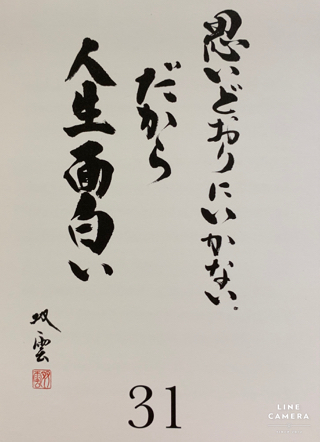 思いどおりにいかない。
だから
人生面白い
双雲
31
LINE
CAMERA